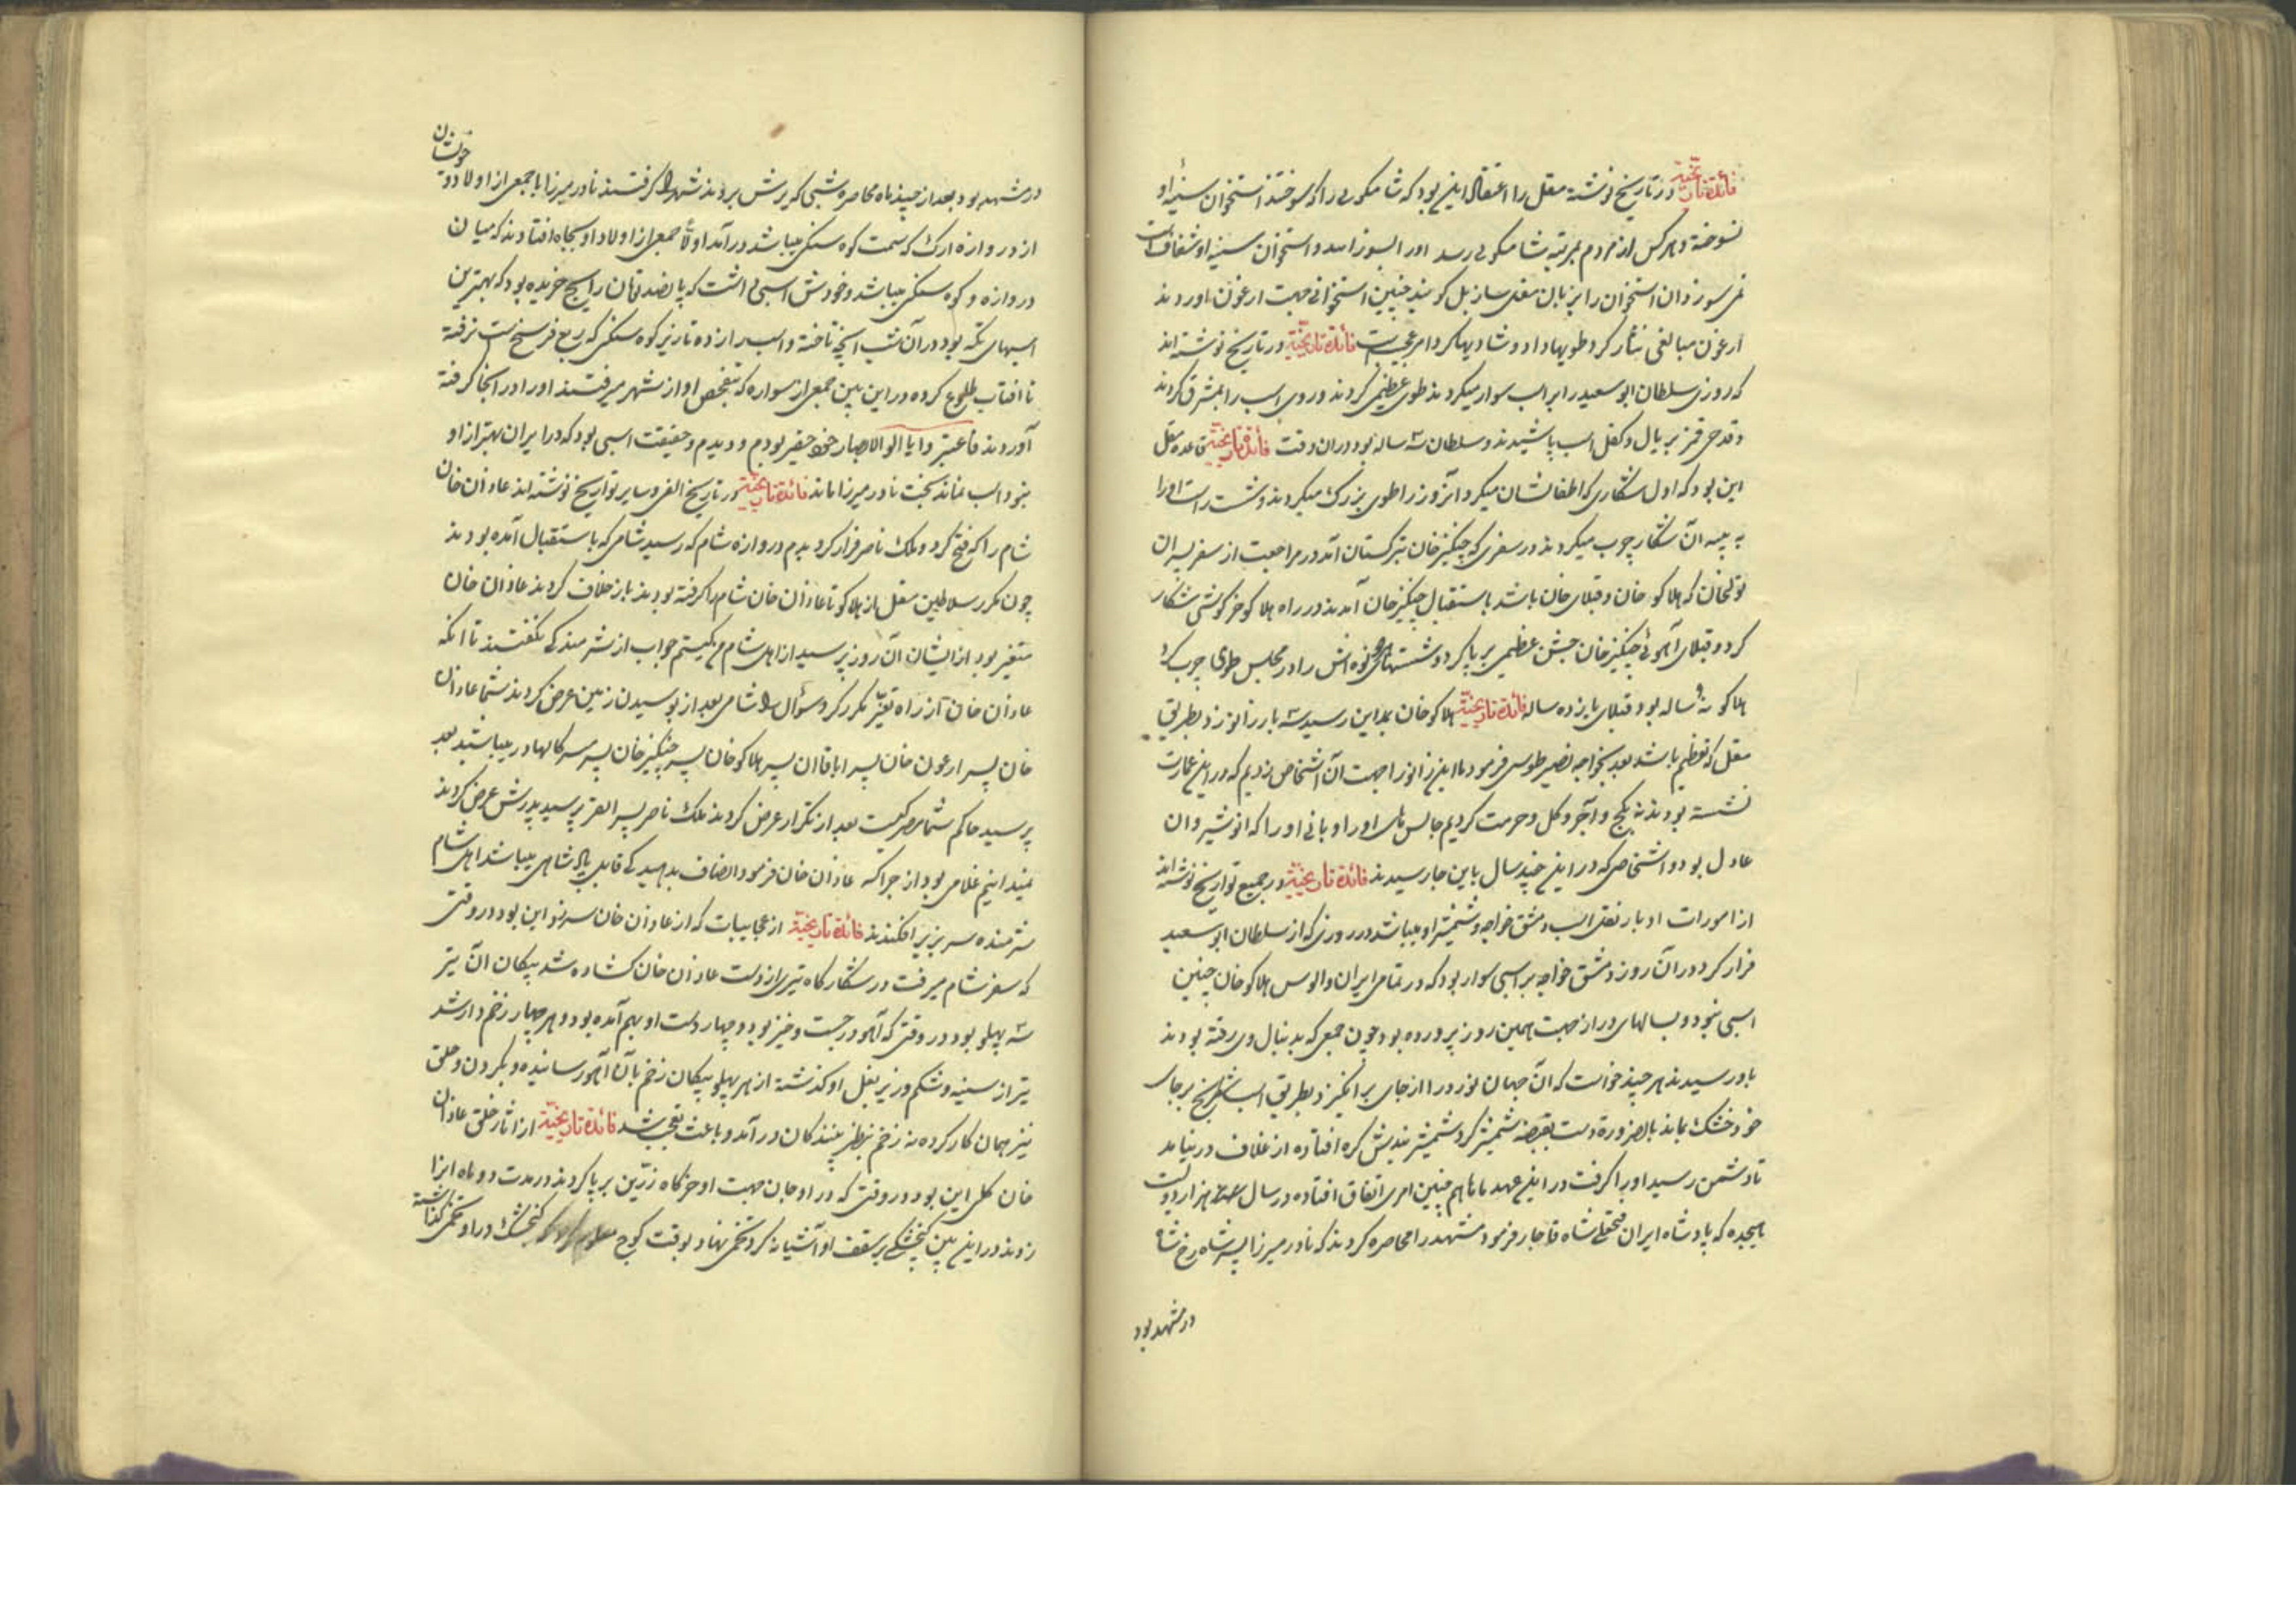 فائدة تاریخیّة در تاریخ نوشته مغل را اعتقاد این بود که شاکمونی را که سوختند استخوان سینهٔ او
نسوخته و هر کس از مردم بمرتبه شاکمونی رسد او را بسوزانند و استخوان سینه او شفاف است
نمی سوزد و آن استخوان را بزبان مغلی ساربل گویند چنین استخوانی جهت ارغون اوردند
ارغون مبالغی نثار کرد طویها داد و شادیها کرد امر عجیبست فائدة تاریخیّة در تاریخ نوشته اند
که روزی سلطان ابو سعید را بر اسب سوار میکردند طوی عظیمی کردند و روی اسب را بمشرق کردند
و قدحی قمز بر یال و کفل اسب پاشیدند و سلطان سه ساله بود در ان وقت فائدة تاریخیّة قاعده مغل
این بود که اول شکاری که اطفالشان میکرد آنروز را طوی بزرک میکردند و شست راست او را
به پیه آن شکار چرب میکردند در سفری که چنگیز خان بترکستان آمد در مراجعت از سفر پسران
تولیخان که هلاکو خان و قبلای خان باشد باستقبال چنگیز خان آمدند در راه هلاکو خرکوشی شکار
کرد و قبلای آهوئی چنگیز خان جشن عظیمی بر پا کرد و شستهای دو نوه اش را در مجلس طوی چرب کرد
هلاکو نه ساله بود و قبلای یازده ساله فائدة تاریخیّة هلاکو خان بمداین رسید سه بار زانو زد بطریق
مغل که تعظیم باشد بعد بخواجه نصیر طوسی فرمود ما این زانو را جهت آن اشخاص زدیم که در این عمارت
نشسته بودند نه بکج و آجر و کل و حرمت کردیم جالس های او را و بانی او را که انوشیروان
عادل بود و اشخاصی که در این چند سال باین جا رسیدند فائدة تاریخیّة در جمیع تواریخ نوشته اند
از امورات ادبار نقل اسب دمشق خواجه و شمشیر او میباشد در روزی که از سلطان ابو سعید
فرار کرد در آن روز دمشق خواجه بر اسبی سوار بود که در تمامی ایران و الوس هلاکو خان چنین
اسبی نبود و بسالهای دراز جهت همین روز پرورده بود چون جمعی که بدنبال وی رفته بودند
باو رسیدند هر چند خواست که آن جهان نورد را از جای بر انگیزد بطریق اسب شطرنج بر جای
خود خشک بماند بالضرورة دست بقبضه شمشیر کرد شمشیر بندیش کره افتاده از غلاف در نیامد
تا دشمن رسید او را گرفت در این عهد ما هم چنین امری اتفاق افتاده در سال هزار و دویست
هیجده که پادشاه ایران فتحعلی شاه قاجار فرمود مشهد را محاصره کردند که نادر میرزا پسر شاه رخ شاه
در مشهد بود
در مشهد بود بعد از چند ماه محاصره شبی که یرش بردند شهر را گرفتند نادر میرزا با جمعی از اولاد و خویشان
از دروازه ارک که سمت کوه سنکی میباشد در آمد اولاً جمعی از اولاد او بچاه افتادند که میان
دروازه و کوه سنکی میباشد و خودش اسبی داشت که پانصد تومان رایج خریده بود که بهترین
اسبهای تکه بود در آن شب آنچه تاخته و اسب رانده تا زیر کوه سنکی که ربع فرسخ است نرفته
تا افتاب طلوع کرده در این بین جمعی از سواره که بتفحص او از شهر میرفتند او را در آنجا گرفته
آوردند فاعتبروا یا اولوالابصار خود حقیر بودم و دیدم و حقیقت اسبی بود که در ایران بهتر از او
نبود اسب نماند بخت نادر میرزا ماند فائدة تاریخیّة در تاریخ الفی و سایر تواریخ نوشته اند غازان خان
شام را که فتح کرد و ملک ناصر فرار کرد بدم دروازه شام که رسید شامی که باستقبال آمده بودند
چون مکرر سلاطین مغل از هلاکو تا غازان خان شام را گرفته بودند باز خلاف کردند غازان خان
متغیر بود از ایشان آن روز پرسید از اهل شام من کیستم جواب از شرمندگی نگفتند تا انکه
غازان خان از راه تغیّر مکرر کرد سؤال را شامی بعد از بوسیدن زمین عرض کردند شما غازان
خان پسر ارغون خان پسر اباقاان پسر هلاکو خان پسر چنگیز خان پسر یسوکا بهادر میباشید بعد
پرسید حاکم شما مصر کیست بعد از تکرار عرض کردند ملک ناصر پسر الفی پرسید پدرش عرض کردند
نمیدانیم غلامی بود از چراکسه غازان خان فرمود انصاف بدهید که قابل پادشاهی میباشد اهل شام
شرمنده سر بزیر افکندند فائدة تاریخیّة از عجایبات که از غازان خان سر زد این بود در وقتی
که سفر شام میرفت در شکارگاه تیری از دست غازان خان کشاده شد پیکان آن تیر
سه پهلو بود در وقتی که آهو در جست و خیز بود و چهار دست او بهم آمده بود و هر چهار زخم دار شد
تیر از سینه و شکم و زیر بغل او گذشته از هر پهلو پیکان زخم بآن آهو رسانیده و بگردن و حلق
نیز همان کار کرده نه زخم بنظر بینندکان در آمد و باعث تعجب شد فائدة تاریخیّة از اثار خلق غازان
خان یکی این بود در وقتی که در اوجان جهت او خرگاه زرّین بر پا کردند در مدت دو ماه انرا
زدند در این بین گنجشکی بر سقف او آشیانه کرد تخمی نهاد بوقت کوچ معلوم کنجشک در او تخمی گذاشته